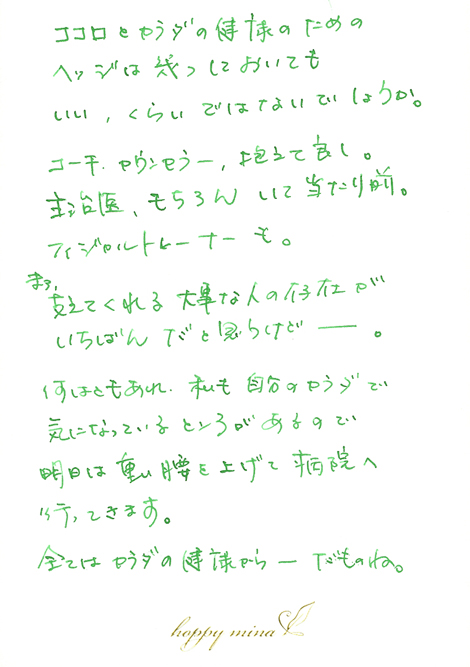 ココロとカラダの健康のための
ヘッジは幾つしておいても
いい、くらいではないでしょうか。
コーチ、カウンセラー、抱えて良し。
主治医、もちろんいて当たり前。
フィジカルトレーナーも。
まぁ、
支えてくれる大事な人の存在が
いちばんだと思うけどー。
何はともあれ、私も自分のカラダで
気になっているところがあるので
明日は重い腰を上げて病院へ
行ってきます。
全てはカラダの健康からーだものね。
happy mina